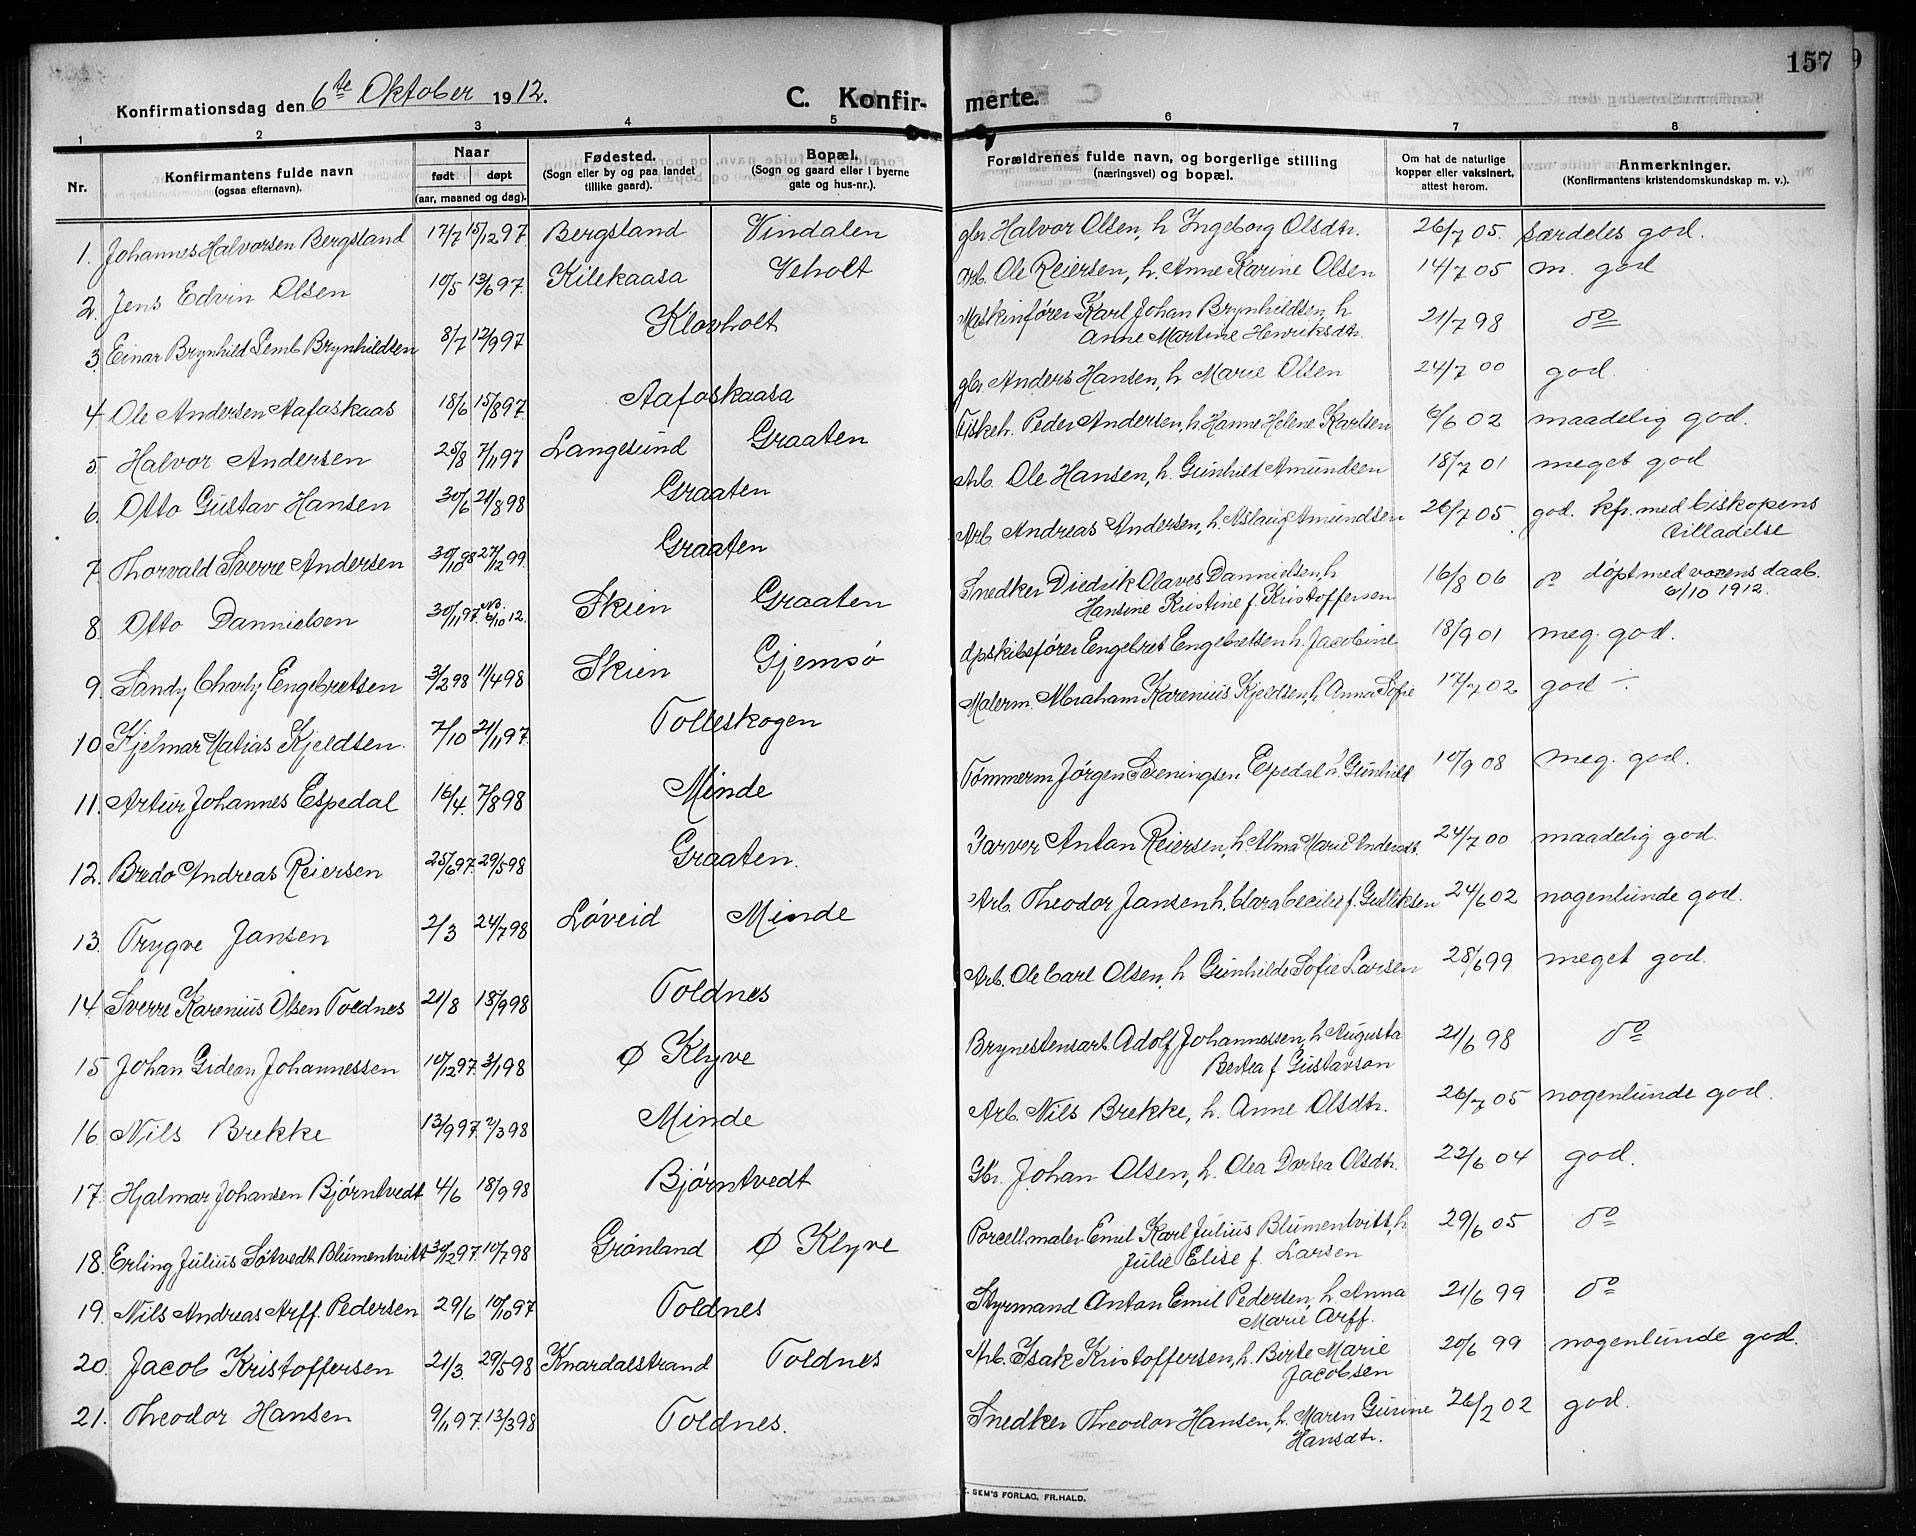 157
Konfirmationsdag den 6te Oktober 1912.
C. Konfir- merte.
1 2 3 4 5 6 7 8
Nr. Konfirmantens fulde navn (ogsaa efternavn). Naar født døpt (aar, maaned og dag). Fødested. (Sogn eller by og paa landet tillike gaard). Bopæl. (Sogn og gaard eller i byerne gate og hus-nr.). Forældrenes fulde navn, og borgerlige stilling (næringsvei) og bopæl. Om hat de naturlige kopper eller vaksinert, attest herom. Anmerkninger. (Konfirmantens kristendomskundskap m. v.).
1. Johannes Halvorsen Bergsland 17/7 15/12 97 Bergsland Vindalen gbr. Halvor Olsen, h. Ingeborg Olsdtr. 26/7 05. særdeles god.
2. Jens Edvin Olsen 10/5 13/6 97. Kilekaasa Veholt Arb. Ole Reiersen, h. Anne Karine Olsen 14/7 05 m. god
3. Einar Brynhild Lemb Brynhildsen 8/7 12/9 97 Klovholt Maskinfører Karl Johan Brynhildsen, h
Anne Martine Henriksdtr. 21/7 98 do
4. Ole Andersen Aafoskaas 18/6 15/8 97. Aafoskaasa gbr. Anders Hansen, h Marie Olsen 24/7 00 god.
5. Halvor Andersen 25/8 7/11 97 Langesund Graaten Fiskeh. Peder Andersen, h Hanne Helene Karlsen 6/6 02 maadelig god.
6. Otto Gustav Hansen 30/6 21/8 98 Graaten Arb. Ole Hansen, h. Gunhild Amundsen 18/7 01 meget god
7. Thorvald Sverre Andersen 30/10 98 27/12 99. Graaten Arb. Andreas Andersen, h. Aslaug Amundsen 26/7 05. god. kfr. med biskopens
tilladelse
8. Otto Dannielsen 30/11 97. NB. 6/10 12. Skien Graaten Snedker Diedrik Olaves Dannielsen, h
Hansine Kristine f. Kristoffersen 16/8 06 do døpt med voxens daab.
6/10 1912.
9. Sandy Charly Engebretsen 3/2 98 11/4 98 Skien Gjemsø dpskibsfører Engebret Engebretsen h. Jacobine 18/9 01 meg. god.
10. Kjelmar Matias Kjeldsen. 7/10 21/11 97. Tolleskogen Malerm. Abraham Karenius Kjeldsen, h Anna Sofie 17/7 02 god
11. Artur Johannes Espedal 16/4. 7/8 98 Minde Tømmerm Jørgen Sveningsen Espedal h. Gunhild 10/9 08 meg. god.
12. Bredo Andreas Reiersen 25/6 97. 29/5 98 Graaten. Garver Anton Reiersen, h. Alma Marie Andersdt. 24/7 00 maadelig god.
13. Trygve Jansen 2/3 24/7 98 Løveid Minde Arb. Theodor Jansen h. Clara Cecilie f. Gulliksen 24/6 02 nogenlunde god.
14. Sverre Karenius Olsen Toldnes 21/8 18/9 98 Toldnes Arb. Ole Carl Olsen, h Gunhilde Sofie Larsen 28/6 99 meget god.
15 Johan Gidean Johannessen 10/12 97. 3/1 98 Ø Klyve Brynestensarb Adolf Johannessen, h Augusta
Bertea f Gustavson 21/6 98 do
16. Nils Brekke 13/9 97. 2/3 98 Minde Arb. Nils Brekke, h. Anne Olsdtr. 26/7 05 nogenlunde god.
17. Hjalmar Johansen Bjørntvedt 4/6 18/9 98 Bjørntvedt Gbr. Johan Olsen, h. Olea Dortea Olsdtr. 22/6 04 god.
18. Erling Julius Søtvedt Blumentvitt 30/12 97. 10/7 98 Grønland Ø Klyve Porcellmaler Emil Karl Julius Blumentvitt, h
Julie Elise f. Larsen 29/6 05 do
19. Nils Andreas Arff. Pedersen 29/6 10/10 97 Toldnes Styrmand Anton Emil Pedersen, h Anna
Marie Arff. 21/6 99 do
20. Jacob Kristoffersen 21/3. 29/5 98 Knardalstrand Toldnes Arb. Isak Kristoffersen, h. Birte Marie
Jacobsen 20/6 99 nogenlunde god.
21. Theodor Hansen 9/11 97. 13/3 98 Toldnes. Snedker Theodor Hansen, h. Maren Gurine
Hansdtr. 26/2 02 god.
SEM'S FORLAG, FR.HALD.